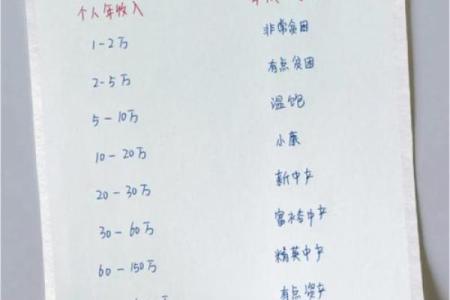 个人年收入
1-2万 非常贫困
2-5万 有点贫困
5-10万 温饱
10-20万 小康
20-30万 新中产
30-60万 富裕中产
60-150万 精英中产
有点资产